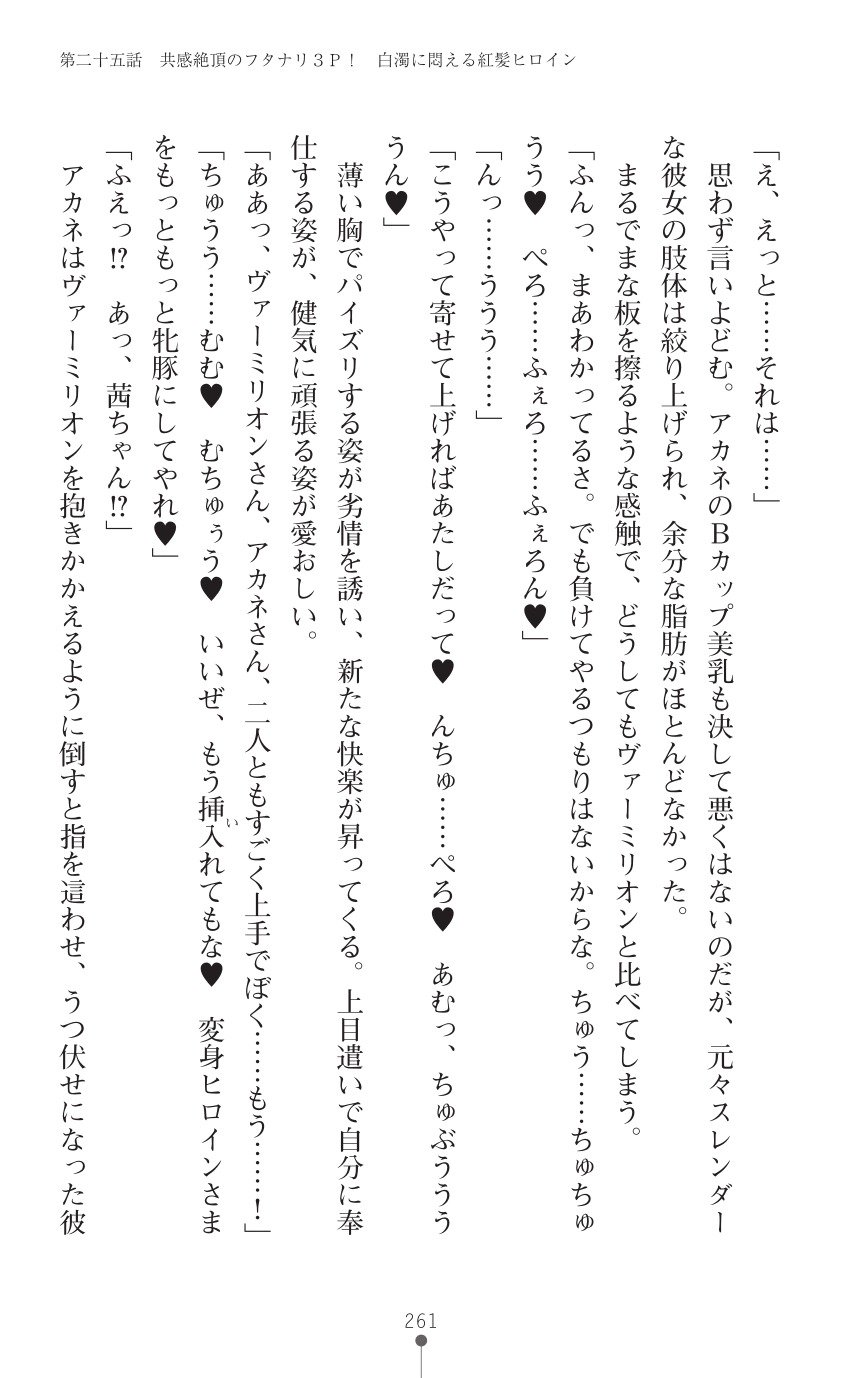 第二十五話　共感絶頂のフタナリ３Ｐ！　白濁に悶える紅髪ヒロイン
「え、えっと……それは……」
　思わず言いよどむ。アカネのＢカップ美乳も決して悪くはないのだが、元々スレンダー
な彼女の肢体は絞り上げられ、余分な脂肪がほとんどなかった。
　まるでまな板を擦るような感触で、どうしてもヴァーミリオンと比べてしまう。
「ふんっ、まあわかってるさ。でも負けてやるつもりはないからな。ちゅう……ちゅちゅ
うう♥　ぺろ……ふぇろ……ふぇろん♥」
「んっ……ううう……」
「こうやって寄せて上げればあたしだって♥　んちゅ……ぺろ♥　あむっ、ちゅぶううう
うん♥」
　薄い胸でパイズリする姿が劣情を誘い、新たな快楽が昇ってくる。上目遣いで自分に奉
仕する姿が、健気に頑張る姿が愛おしい。
「ああっ、ヴァーミリオンさん、アカネさん、二人ともすごく上手でぼく……もう……！」
「ちゅうう……むむ♥　むちゅぅう♥　いいぜ、もう挿入れてもな♥　変身ヒロインさま
をもっともっと牝豚にしてやれ♥」
「ふえっ!?　あっ、茜ちゃん!?」
　アカネはヴァーミリオンを抱きかかえるように倒すと指を這わせ、うつ伏せになった彼
い
261